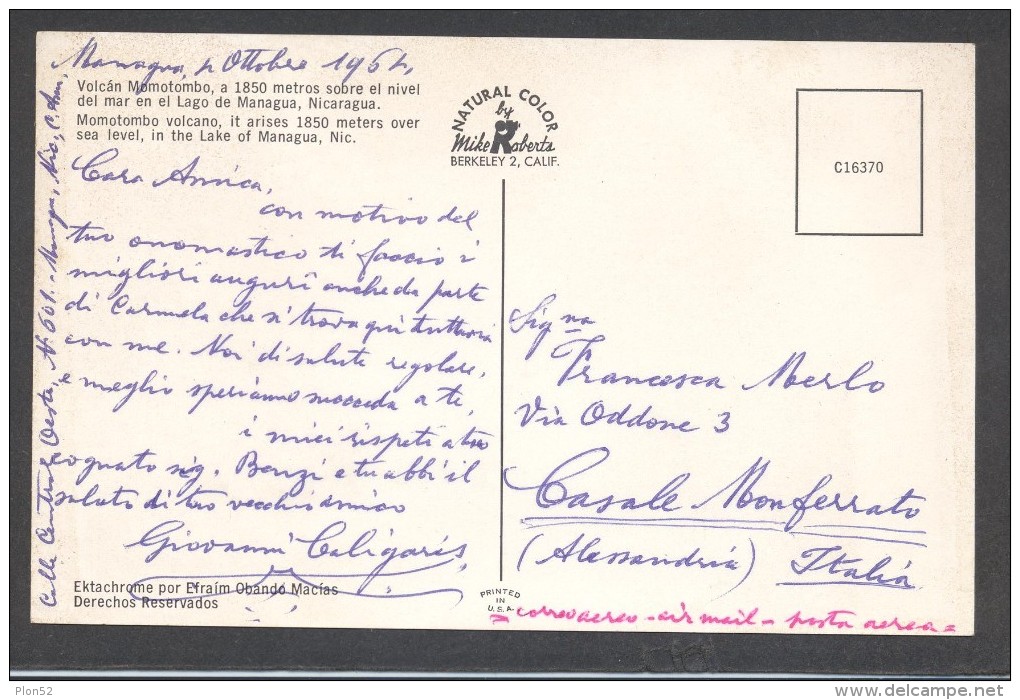 Managua, 2 Ottobre 1962,
Volcán Momotombo, a 1850 metros sobre el nivel
del mar en el Lago de Managua, Nicaragua.
Momotombo volcano, it arises 1850 meters over
sea level, in the Lake of Managua, Nic.
Cara Amica,
con motivo del
tuo onomastico ti faccio i
migliori auguri anche da parte
di Carmela che si trova qui tuttavia
con me. Noi di salute regolare,
meglio speriamo succeda a te,
i miei rispeti a tuo
cognato sig. Benzi e tu abbi il
saluto di tuo vecchio amico
Giovanni Caligaris,
Ektachrome por Efraím Obando Macías
Derechos Reservados
Calle Central Oeste, N. 601.- Managua, Nic., C. Am.
NATURAL COLOR
by
Mike Roberts
BERKELEY 2, CALIF.
PRINTED
IN
U.S.A.
C16370
Sig.na
Francesca Merlo
Via Oddone 3
Casale Monferrato
(Alessandria) Italia
= correo aereo - air mail - posta aerea =
Plon52
www.delcampe.net